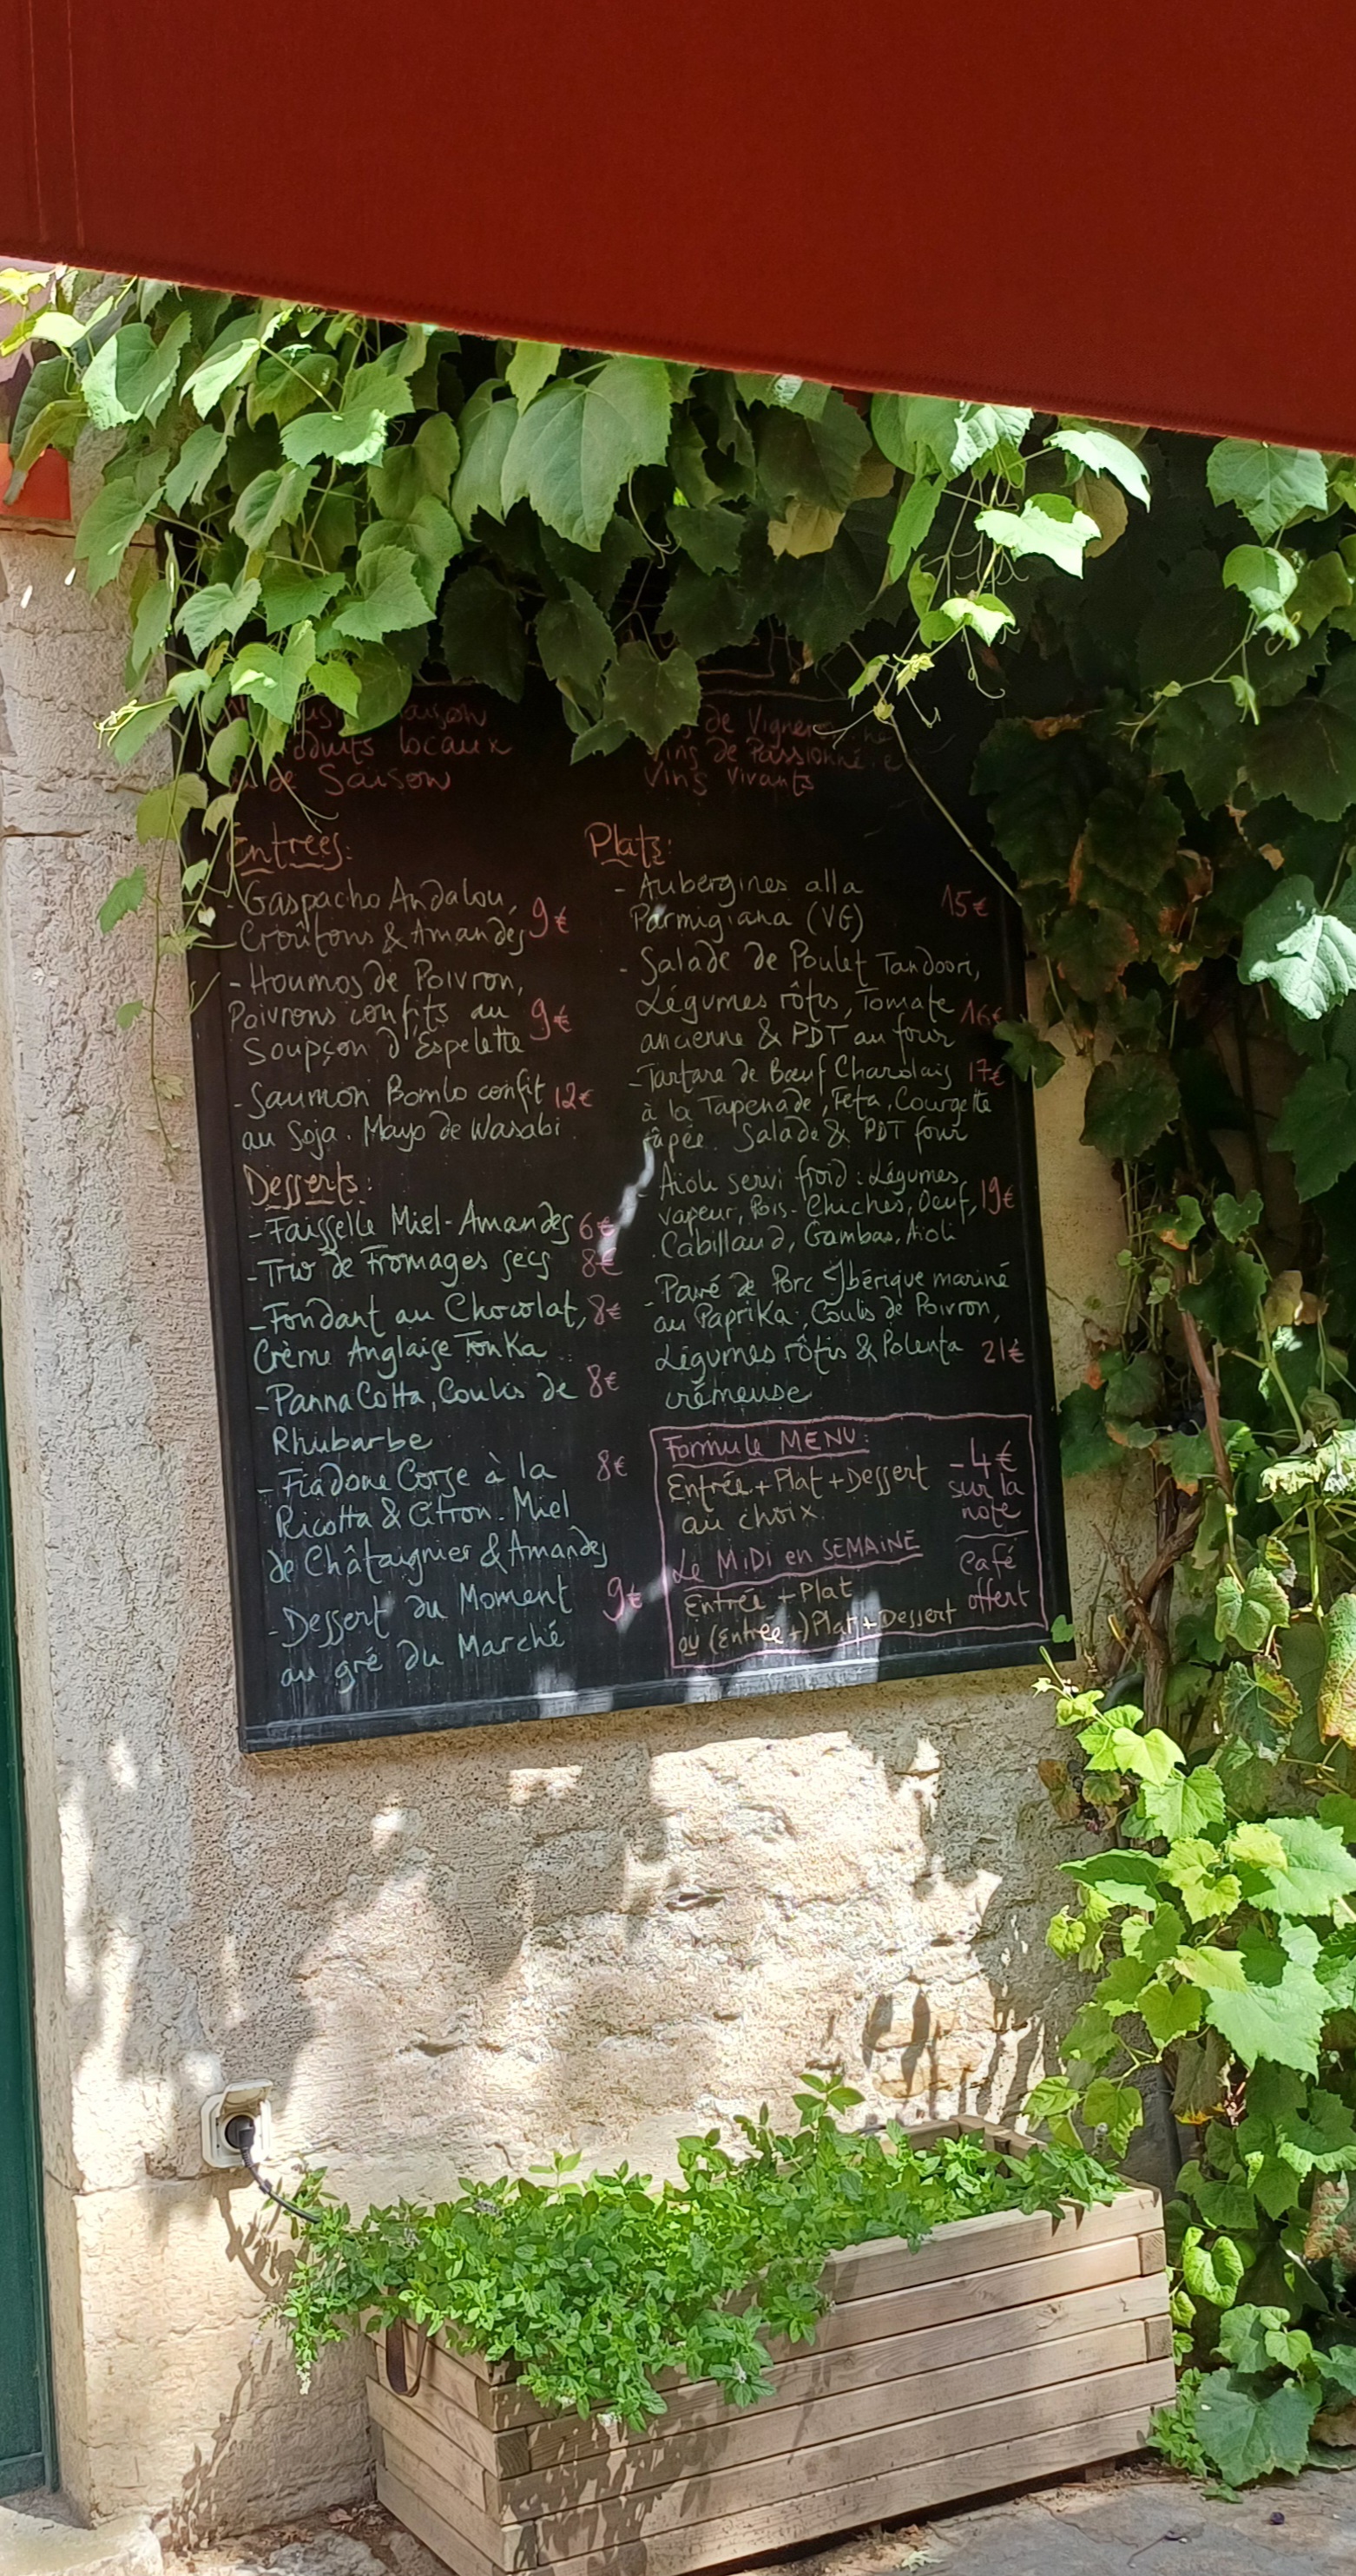 locaux
de Saison
de
Vins de Passionné
Vins Vivants
Entrées:
- Gaspacho Andalou,
Croûtons & Amandes 9€
- Houmos de Poivron,
Poivrons confits au 9€
Soupçon d'Espelette
- Saumon Bomlo confit 12€
au Soja. Mayo de Wasabi
Desserts:
- Faisselle Miel-Amandes 6€
- Trio de Fromages secs 8€
- Fondant au Chocolat, 8€
Crème Anglaise Tonka
- Panna Cotta, Coulis de 8€
Rhubarbe
- Fiadone Corse à la 8€
Ricotta & Citron. Miel
de Châtaignier & Amandes
- Dessert du Moment 9€
au gré du Marché
Plats:
- Aubergines alla 15€
Parmigiana (VG)
- Salade de Poulet Tandoori,
Légumes rôtis, Tomate 16€
ancienne & PDT au four
- Tartare de Bœuf Charolais 17€
à la Tapenade, Feta, Courgette
râpée. Salade & PDT four
Aïoli servi froid: Légumes
vapeur, Pois-Chiches, Oeuf, 19€
Cabillaud, Gambas, Aïoli
- Pavé de Porc Ibérique mariné
au Paprika, Coulis de Poivron,
Légumes rôtis & Polenta 21€
crémeuse
Formule MENU:
Entrée + Plat + Dessert -4€
au choix. sur la
note
Le MiDi en SEMAiNE
Café
Entrée + Plat offert
ou (Entrée +) Plat + Dessert